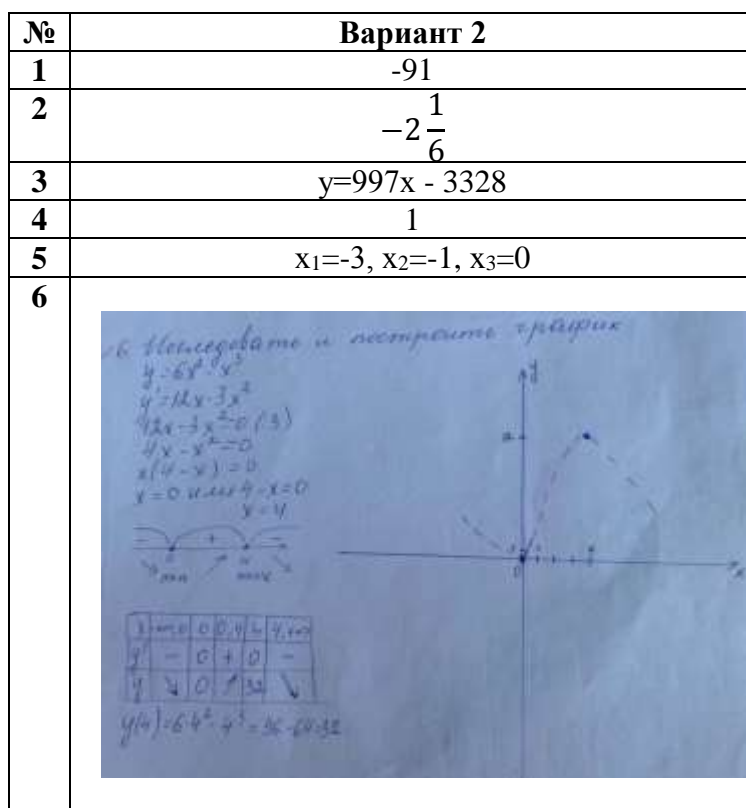 № Вариант 2
1 -91
2 −2 1/6
3 y=997x - 3328
4 1
5 x₁=-3, x₂=-1, x₃=0
6
6 Исследовать и построить график
y=6x² x³
y'=12x-3x²
12x-3x²=0 (3)
4x-x²=0
x(4-x)=0
x=0 или 4-x=0
x=4
- + -
0 4
min max
x 0 0,4 4
y' - 0 + 0 -
y ↘ 0 ↗ 32 ↘
y(4)=6·4²-4³=96-64=32
y
0
x